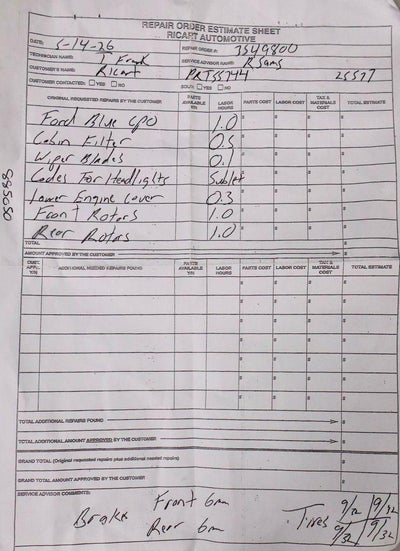 REPAIR ORDER ESTIMATE SHEET
RICART AUTOMOTIVE
DATE: 5-14-26 REPAIR ORDER #: 3549800
TECHNICIAN NAME: T Frank SERVICE ADVISOR NAME: R Sams
CUSTOMER'S NAME: Ricart PRT55744 25577
CUSTOMER CONTACTED: YES NO SOLD: YES NO
ORIGINAL REQUESTED REPAIRS BY THE CUSTOMER PARTS AVAILABLE Y/N LABOR HOURS PARTS COST LABOR COST TAX & MATERIALS COST TOTAL ESTIMATE
Ford Blue CPO 1.0 $ $ $ $
Cabin Filter 0.5 $ $ $ $
Wiper Blades 0.1 $ $ $ $
Codes For Headlights Sublet $ $ $ $
Lower Engine Cover 0.3 $ $ $ $
Front Rotors 1.0 $ $ $ $
Rear Rotors 1.0 $ $ $ $
TOTAL $
AMOUNT APPROVED BY THE CUSTOMER $
CUST. APP. Y/N ADDITIONAL NEEDED REPAIRS FOUND PARTS AVAILABLE Y/N LABOR HOURS PARTS COST LABOR COST TAX & MATERIALS COST TOTAL ESTIMATE
$ $ $ $
$ $ $ $
$ $ $ $
$ $ $ $
$ $ $ $
$ $ $ $
$ $ $ $
TOTAL ADDITIONAL REPAIRS FOUND $
TOTAL ADDITIONAL AMOUNT APPROVED BY THE CUSTOMER $
GRAND TOTAL (Original requested repairs plus additional needed repairs) $
GRAND TOTAL AMOUNT APPROVED BY THE CUSTOMER $
SERVICE ADVISOR COMMENTS:
Brakes Front 6mm
Rear 6m
Tires 9/32 9/32
9/32 9/32